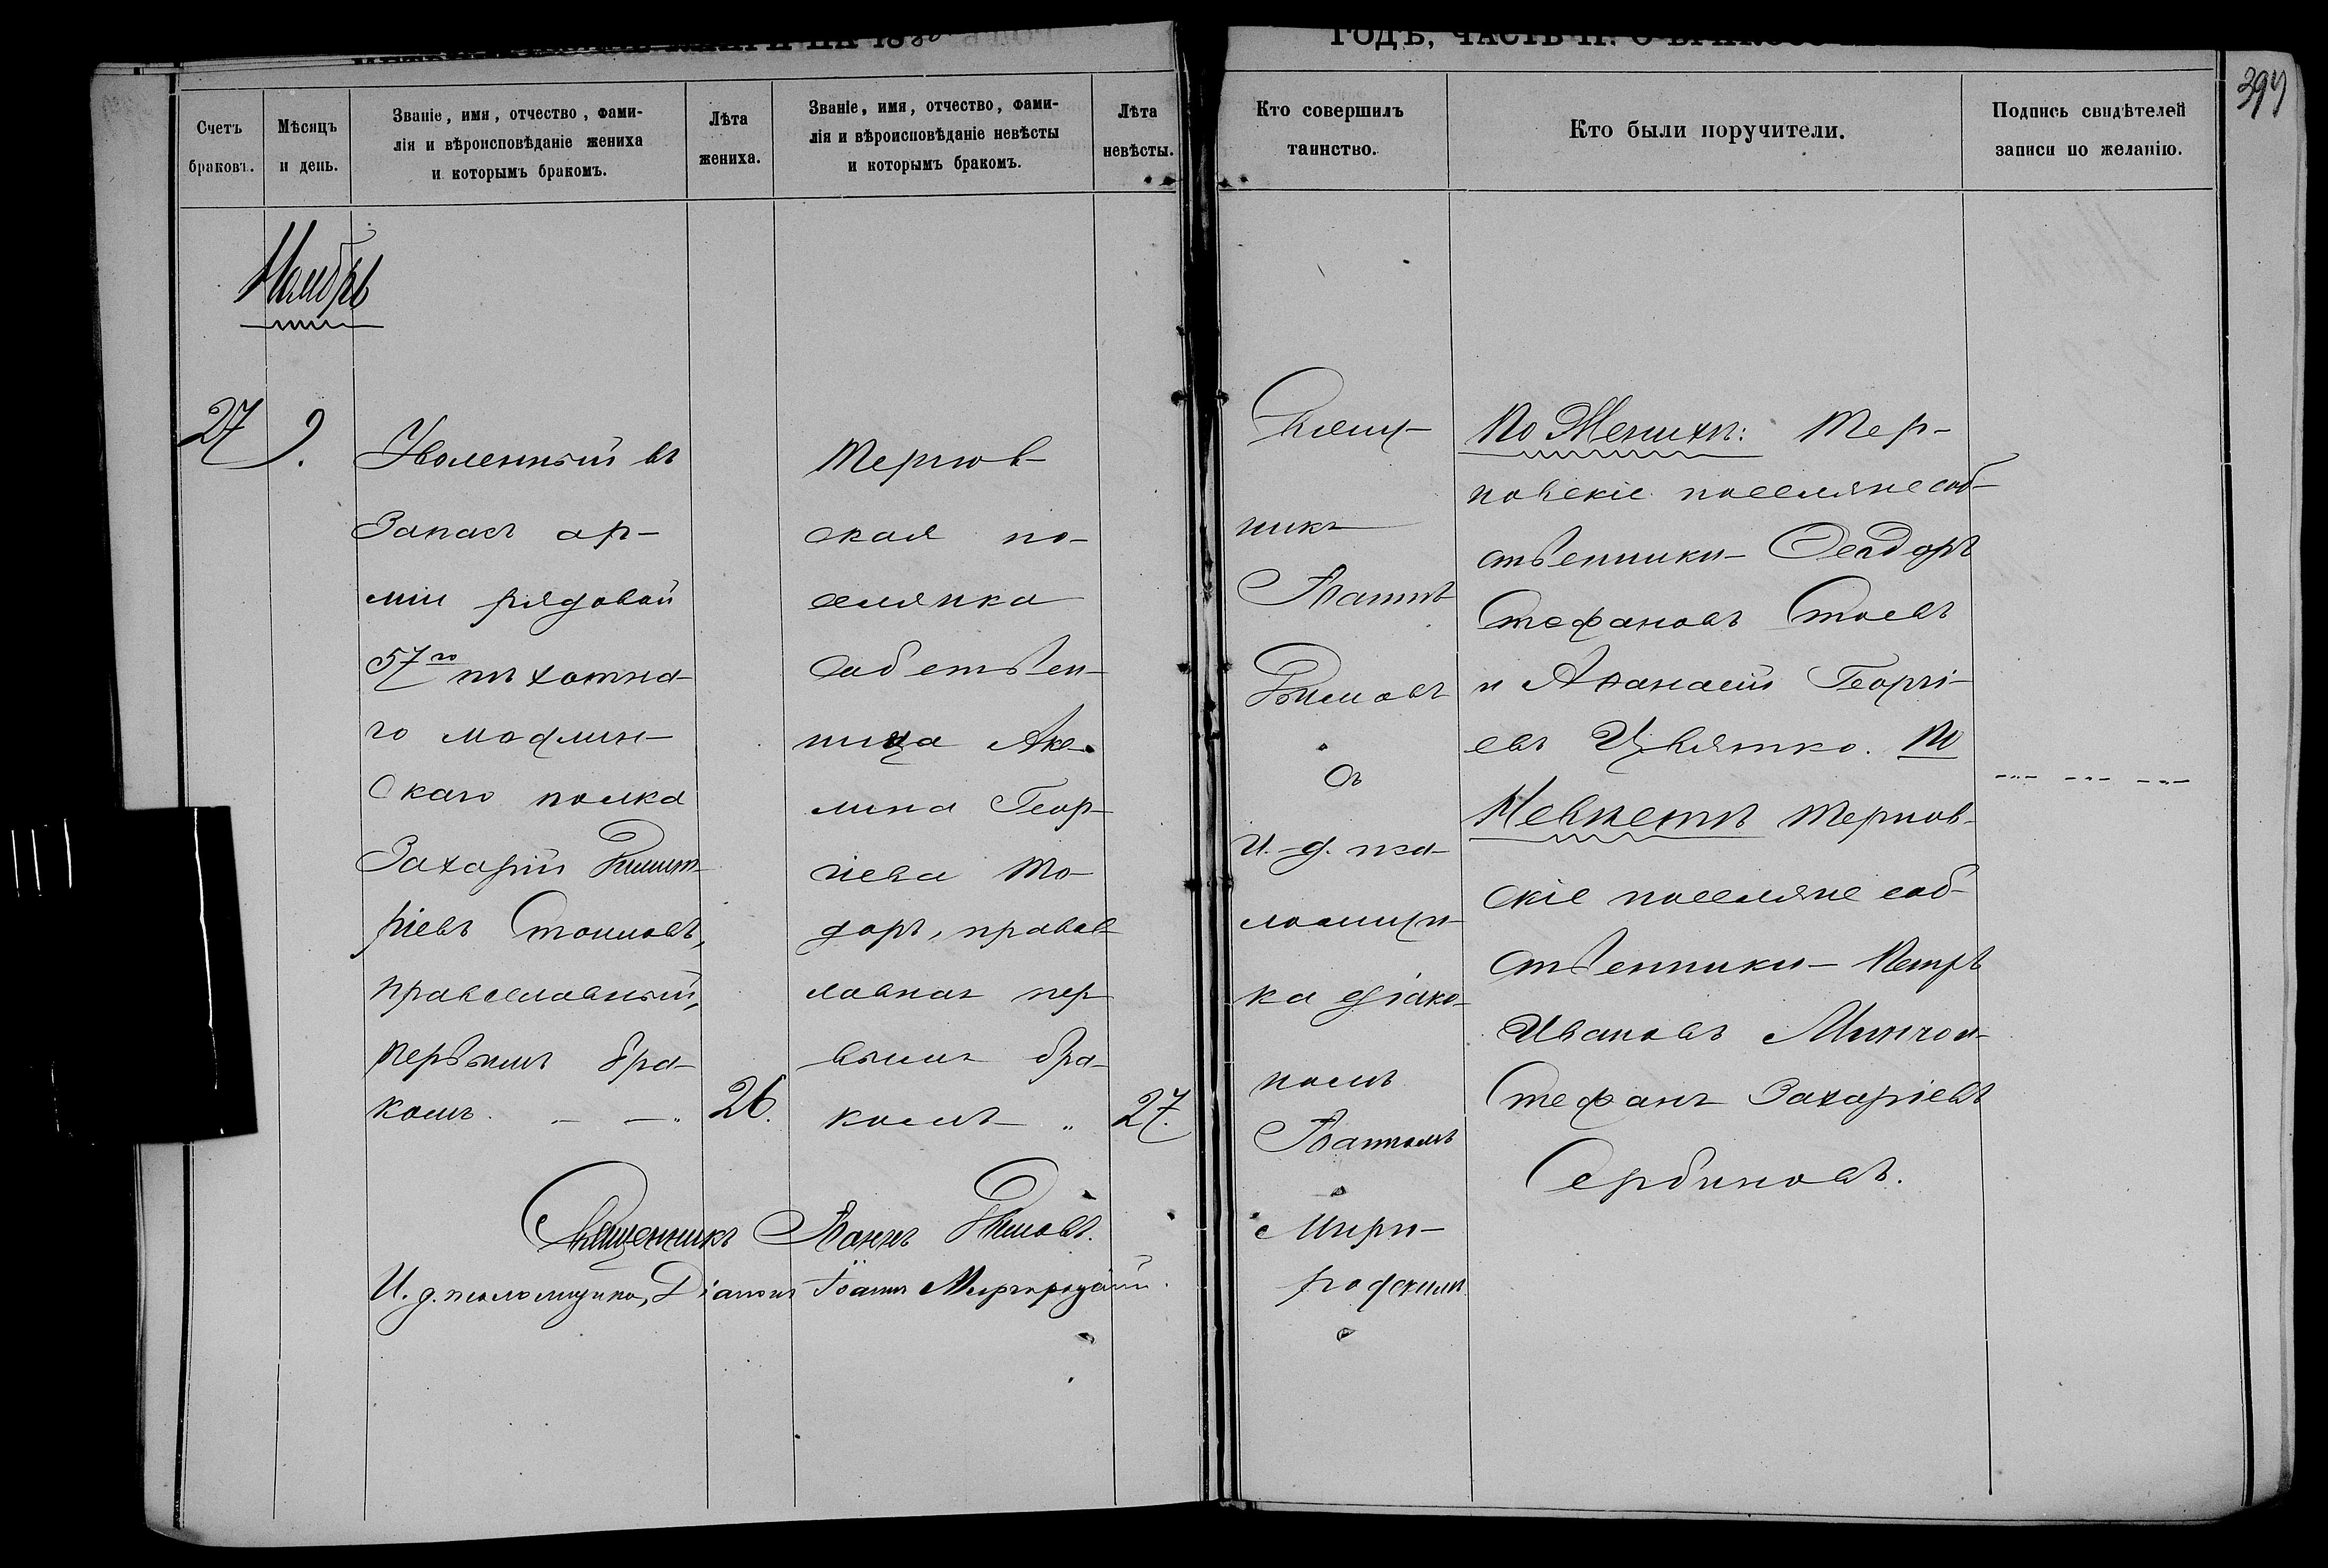 ГОДЪ, ЧАСТЬ II.
397
Счетъ браковъ.
Мѣсяцъ и день.
Званіе, имя, отчество, фами-
лія и вѣроисповѣданіе жениха
и которымъ бракомъ.
Лѣта жениха.
Званіе, имя, отчество, фами-
лія и вѣроисповѣданіе невѣсты
и которымъ бракомъ.
Лѣта невѣсты.
Кто совершилъ
таинство.
Кто были поручители.
Подпись свидѣтелей
записи по желанію.
Ноябрь
27
9.
Уволенный въ
Запасъ ар-
міи рядовой
57го пѣхотна-
го модлин-
скаго полка
Захарій Димит-
ріевъ Стоиловъ,
православный,
первымъ бра-
комъ.
26.
Тернов-
ская по-
селянка
собствен-
ница Аке-
лина Геор-
гіева То-
доръ, правос-
лавная пер-
вымъ бра-
комъ
27.
Свящ-
никъ
Іоаннъ
Димовъ
съ
И. д. пса-
ломщи-
ка діако-
номъ
Іоанномъ
Мирго-
родскимъ
По Женихѣ: Тер-
новскіе поселяне соб-
ственники - Феодоръ
Стефановъ Стоевъ
и Афанасій Георгі-
евъ Цвятко. По
Невѣстѣ Тернов-
скіе поселяне соб-
ственники - Петръ
Ивановъ
Стефанъ Захаріевъ
Сербиновъ.
Священникъ Іоаннъ Димовъ.
И. д. псаломщика, Діаконъ Іоаннъ Миргородскій.